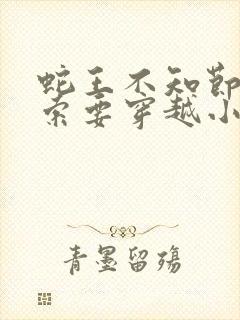 蛇王不知節
索要穿越小
青墨留殇